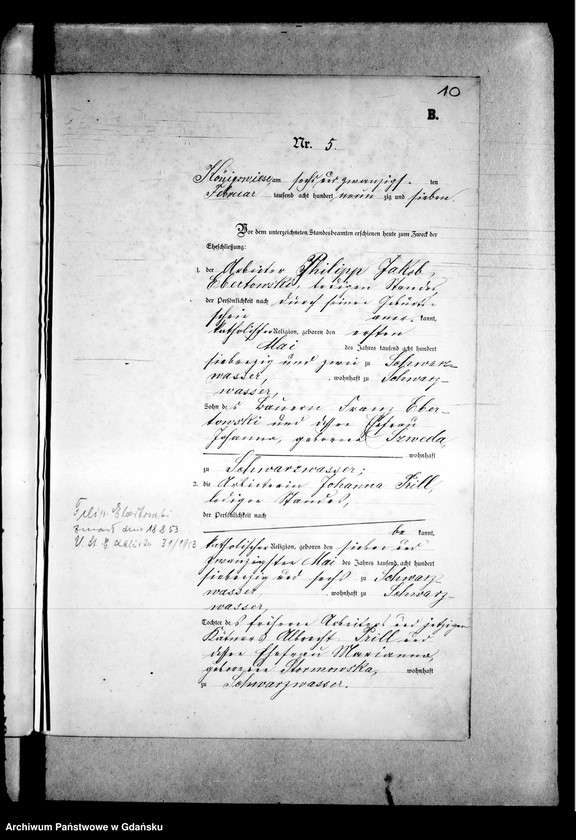 10
B.
Nr. 5.
Königswiese am sechs und zwanzigsten
Februar tausend acht hundert neun zig und sieben.
Vor dem unterzeichneten Standesbeamten erschienen heute zum Zweck der
Eheschließung:
1. der Arbeiter Philipp Jakob
Ebertowski, ledigen Standes
der Persönlichkeit nach durch seinen Geburts-
schein aner kannt,
katholischer Religion, geboren den ersten
Mai des Jahres tausend acht hundert
siebenzig und zwei zu Schwarz-
wasser, wohnhaft zu Schwarz-
wasser,
Sohn des Bauern Franz Eber-
towski und dessen Ehefrau
Johanna, geborene Szweda,
wohnhaft
zu Schwarzwasser;
2. die Arbeiterin Johanna Prill,
ledigen Standes,
der Persönlichkeit nach
be kannt,
katholischer Religion, geboren den sieben und
zwanzigsten Mai des Jahres tausend acht hundert
siebenzig und sechs zu Schwarz-
wasser, wohnhaft zu Schwarz-
wasser,
Tochter des früheren Arbeiters und jetzigen
Kätners Albrecht Prill und
dessen Ehefrau Marianna,
geborene Stormowska, wohnhaft
zu Schwarzwasser.
Filip Ebertowski
zmarł dnia 53
31/1913
Archiwum Państwowe w Gdańsku